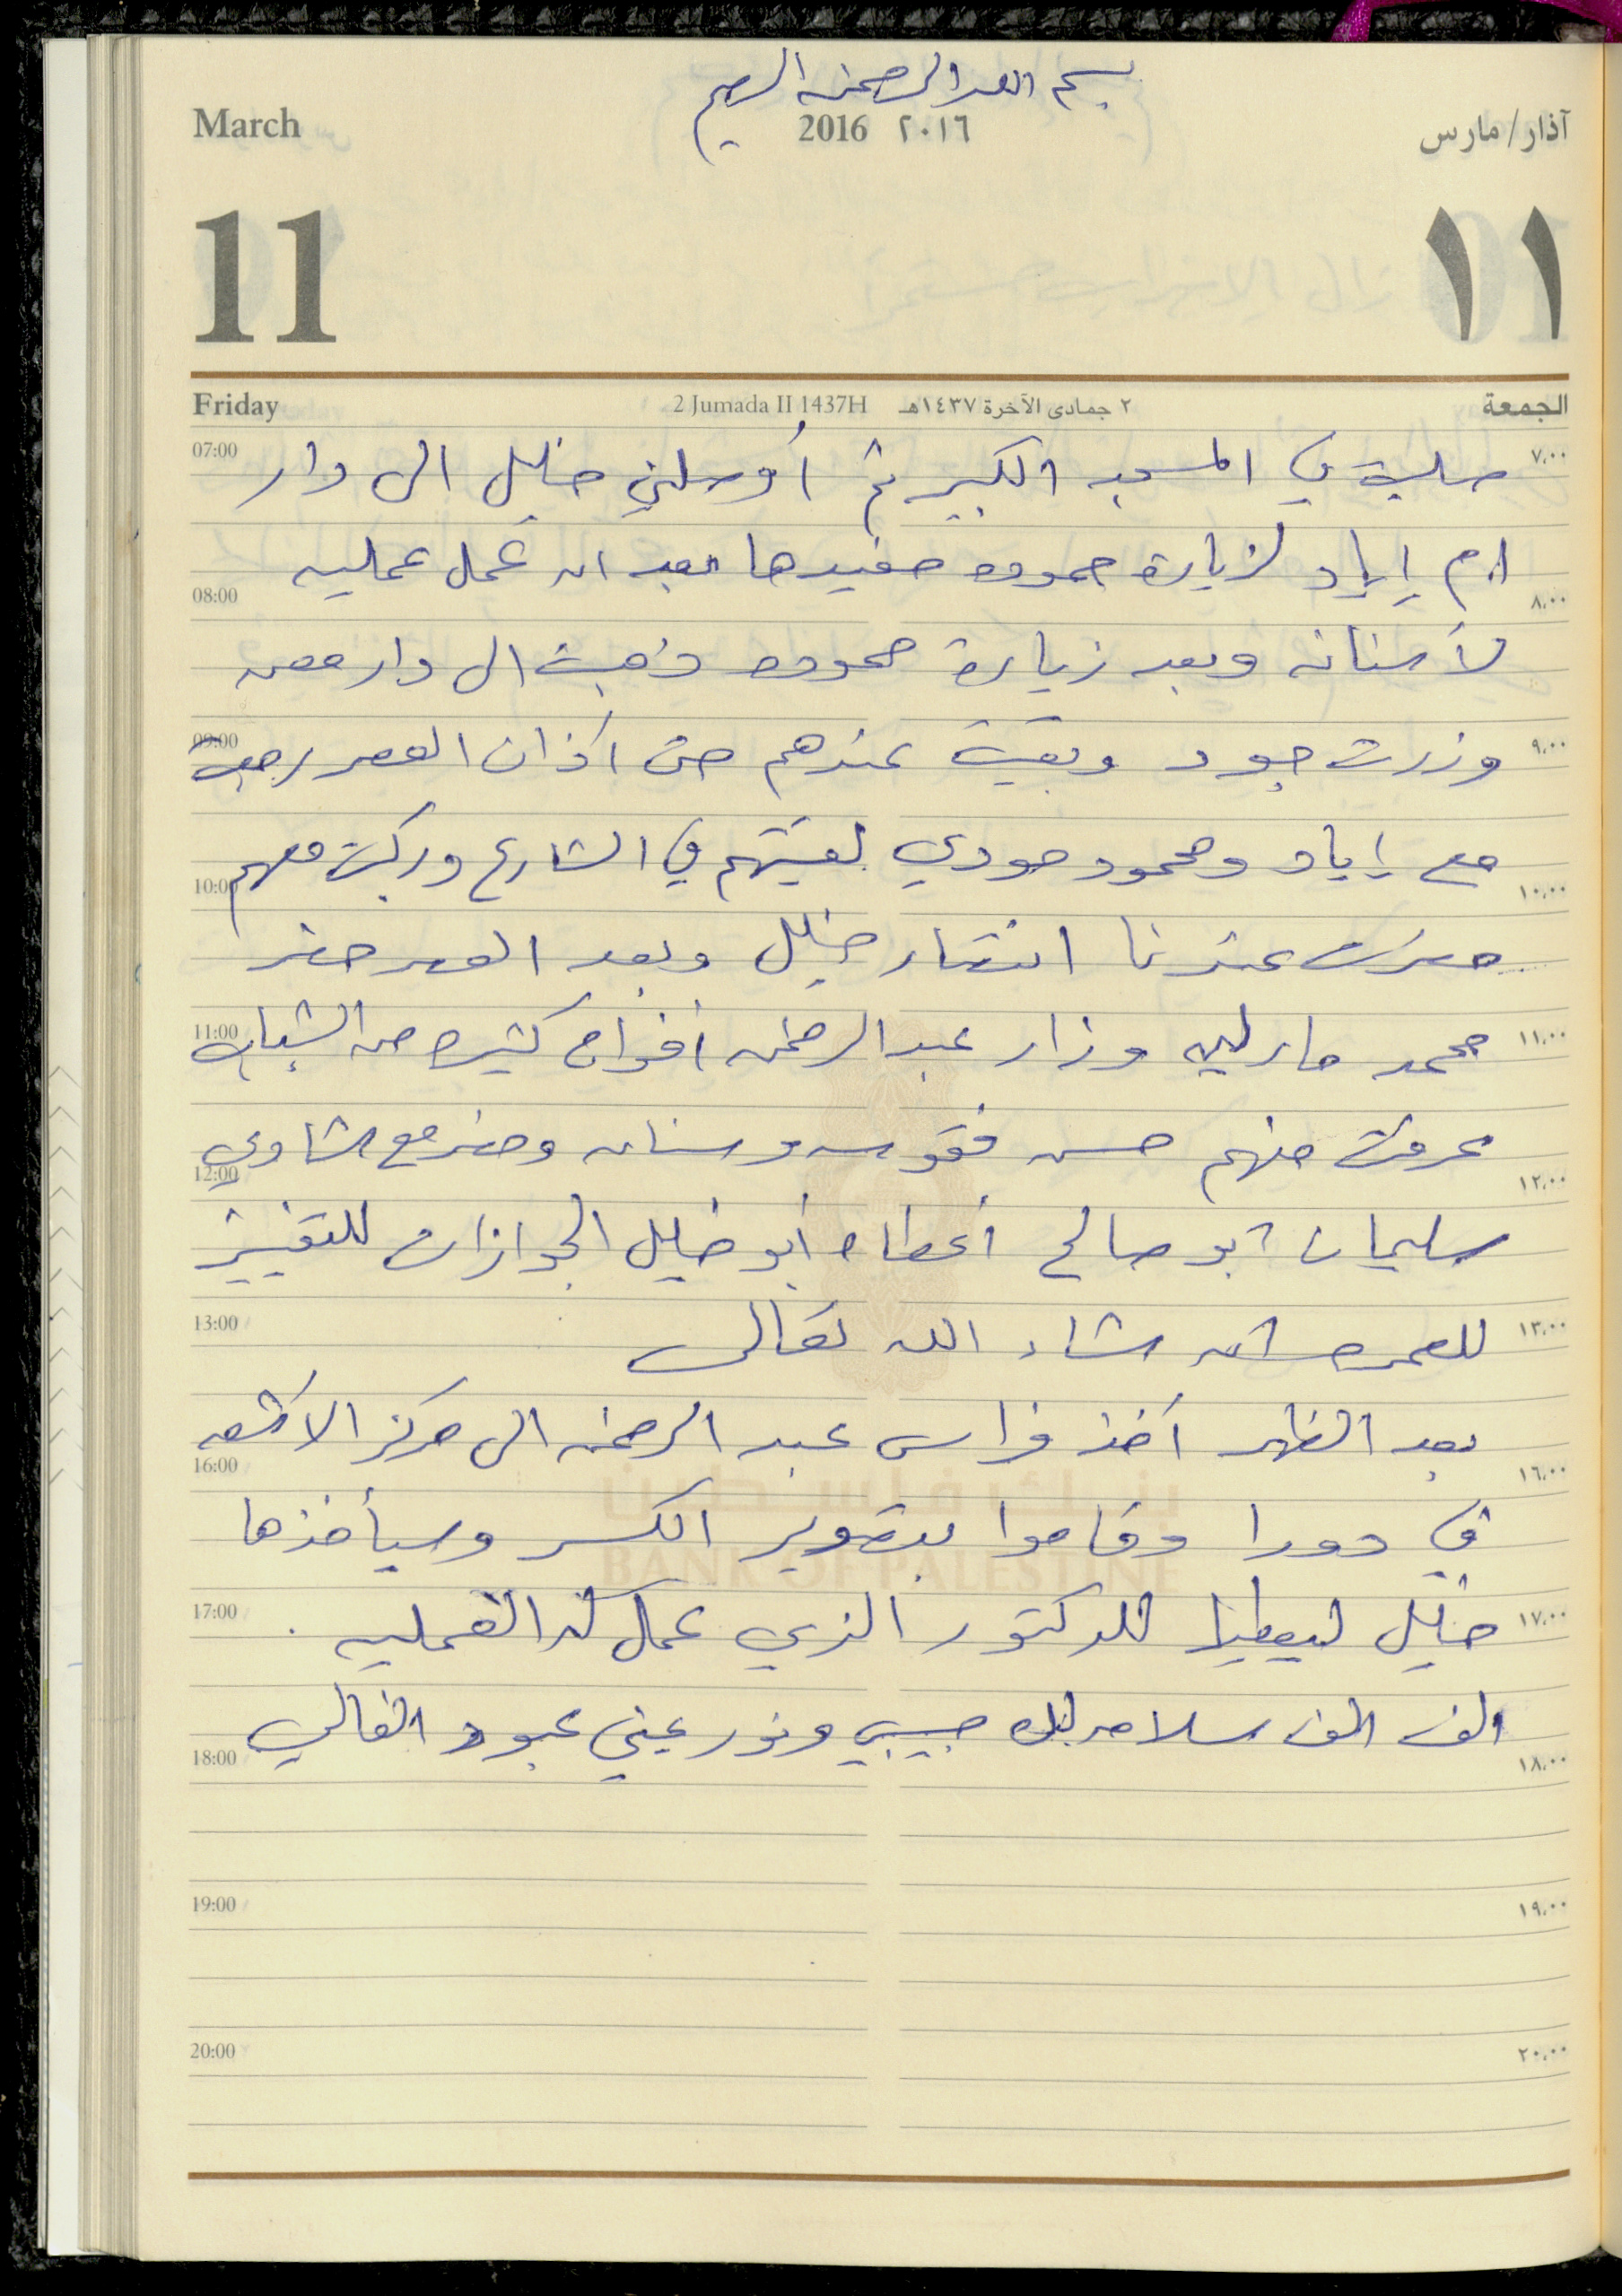 بسم الله الرحمن الرحيم
March 2016 ٢٠١٦ آذار/مارس
11 ١١
Friday 2 Jumada II 1437H ٢ جمادى الآخرة ١٤٣٧هـ الجمعة
07:00 صليت في المسجد الكبير ثم أوصلني خليل الى دار ٧,٠٠
ام إياد لزيارة حموده حفيدها بعد ان عمل عمليه
08:00 ٨,٠٠
لأسنانه وبعد زيارة حموده ذهبت الى دار معن
09:00 وزرت جود وبقيت عندهم حتى اذان العصر رجعت ٩,٠٠
مع إياد ومحمود حودي لقيتهم في الشارع وركبت معهم
10:00 ١٠,٠٠
حضرت عندنا انتصار خليل وبعد العصر حضر
11:00 محمد مارليه وزار عبد الرحمن أفواج كثيره من الشباب ١١,٠٠
عرفت منهم حسن فقوسه وسنان وحضر مع الشاوي
12:00 ١٢,٠٠
سليمان ابو صالح أعطاه أبو خليل الجوازات للتفييز
13:00 للعمره ان شاء الله تعالى ١٣,٠٠
بعد الظهر أخذ فراس عبد الرحمن الى مركز الاشعه
16:00 ١٦,٠٠
بنك فلسطين
في دورا وقاموا بتصوير الكسر وسيأخذها
BANK OF PALESTINE
17:00 خليل ليعطيها للدكتور الذي عمل له العمليه . ١٧,٠٠
الف الف سلامه لك حبيبي ونور عيني عبود الغالي
18:00 ١٨,٠٠
19:00 ١٩,٠٠
20:00 ٢٠,٠٠